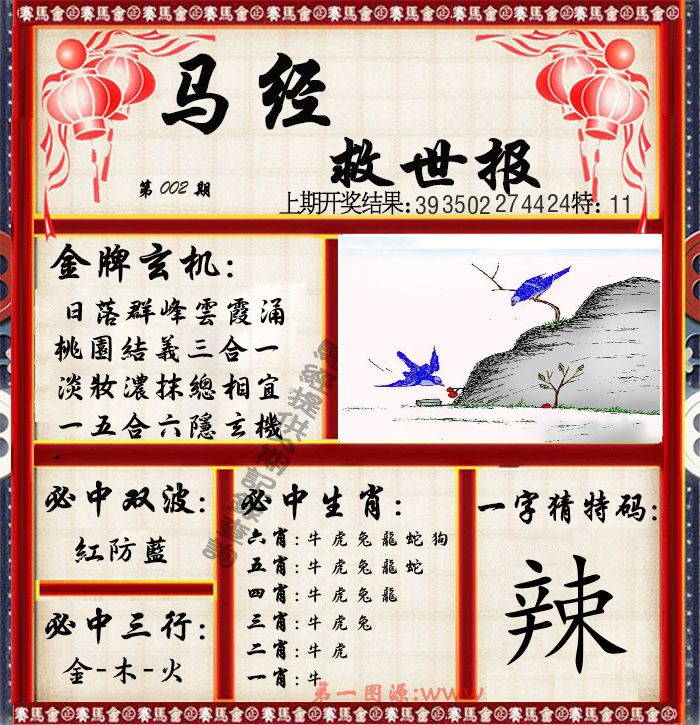 马经
救世报
第 002 期
上期开奖结果:39 35 02 27 44 24 特: 11
金牌玄机:
日落群峰雲霞涌
桃園結義三合一
淡妝濃抹總相宜
一五合六隱玄機
必中双波:
紅防藍
必中三行:
金-木-火
必中生肖:
六肖:牛 虎 兔 龍 蛇 狗
五肖:牛 虎 兔 龍 蛇
四肖:牛 虎 兔 龍
三肖:牛 虎 兔
二肖:牛 虎
一肖:牛
一字猜特码:
辣
第一图源:www